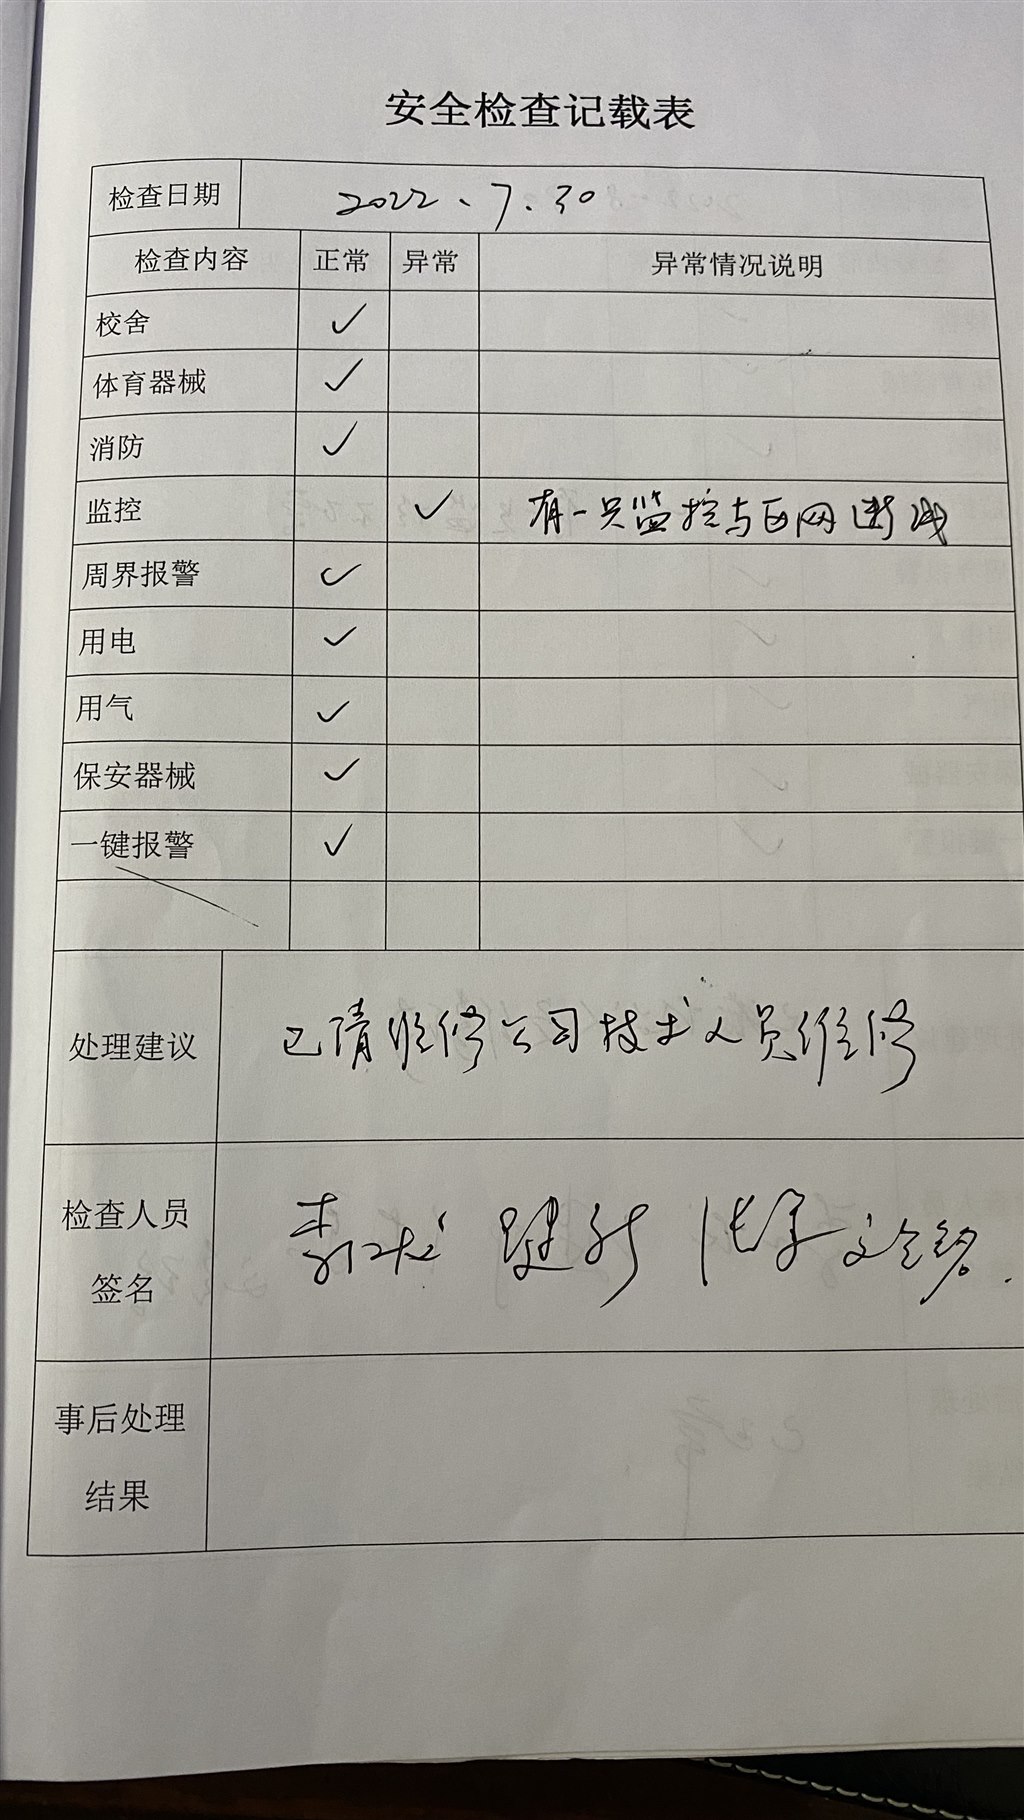 安全检查记载表
检查日期 2022、7.30
检查内容 正常 异常 异常情况说明
校舍 ✓
体育器械 ✓
消防 ✓
监控 ✓ 有一只监控与西网断线
周界报警 ✓
用电 ✓
用气 ✓
保安器械 ✓
一键报警 ✓
处理建议 已请维修公司技术人员维修
检查人员
签名
事后处理
结果